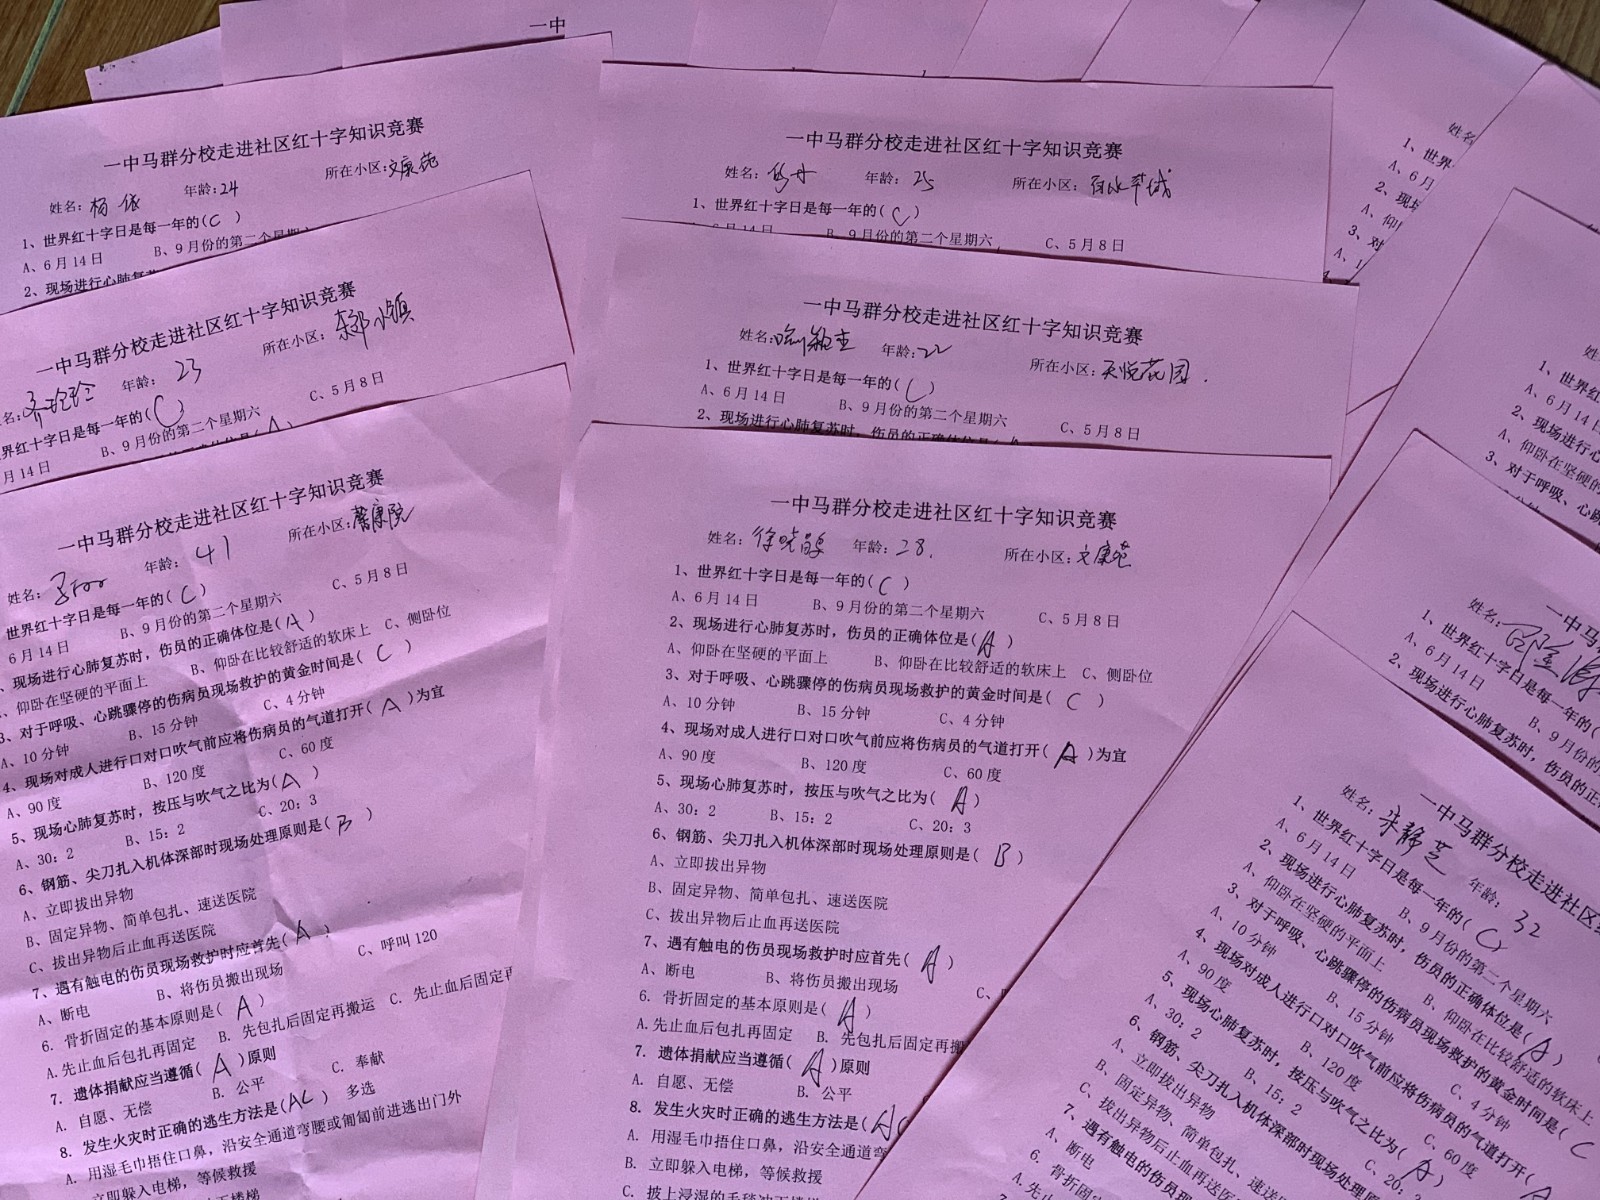 一中
一中马群分校走进社区红十字知识竞赛
姓名：杨依 年龄：24 所在小区：文康苑
1、世界红十字日是每一年的（C）
A、6月14日 B、9月份的第二个星期六
2、现场进行心肺复苏
一中马群分校走进社区红十字知识竞赛
年龄：23 所在小区：
界红十字日是每一年的（C）
月14日 B、9月份的第二个星期六 C、5月8日
一中马群分校走进社区红十字知识竞赛
姓名： 年龄：41 所在小区：
世界红十字日是每一年的（C）
6月14日 B、9月份的第二个星期六 C、5月8日
、现场进行心肺复苏时，伤员的正确体位是（A）
、仰卧在坚硬的平面上 B、仰卧在比较舒适的软床上 C、侧卧位
3、对于呼吸、心跳骤停的伤病员现场救护的黄金时间是（C）
A、10分钟 B、15分钟 C、4分钟
4、现场对成人进行口对口吹气前应将伤病员的气道打开（A）为宜
A、90度 B、120度 C、60度
5、现场心肺复苏时，按压与吹气之比为（A）
A、30：2 B、15：2 C、20：3
6、钢筋、尖刀扎入机体深部时现场处理原则是（B）
A、立即拔出异物
B、固定异物、简单包扎、速送医院
C、拔出异物后止血再送医院
7、遇有触电的伤员现场救护时应首先（A）
A、断电 B、将伤员搬出现场 C、呼叫120
6. 骨折固定的基本原则是（A）
A.先止血后包扎再固定 B. 先包扎后固定再搬运 C. 先止血后固定再
7. 遗体捐献应当遵循（A）原则
A. 自愿、无偿 B. 公平 C. 奉献
8. 发生火灾时正确的逃生方法是（AC）多选
A. 用湿毛巾捂住口鼻，沿安全通道弯腰或匍匐前进逃出门外
立即躲入电梯，等候救援
一中马群分校走进社区红十字知识竞赛
姓名： 年龄：25 所在小区：
1、世界红十字日是每一年的（C）
6月14日 B、9月份的第二个星期六 C、5月8日
一中马群分校走进社区红十字知识竞赛
姓名： 年龄：22 所在小区：天悦花园.
1、世界红十字日是每一年的（C）
A、6月14日 B、9月份的第二个星期六 C、5月8日
2、现场进行心肺复苏时，伤员的正确体位是（
一中马群分校走进社区红十字知识竞赛
姓名：徐晓 年龄：28. 所在小区：文康苑
1、世界红十字日是每一年的（C）
A、6月14日 B、9月份的第二个星期六 C、5月8日
2、现场进行心肺复苏时，伤员的正确体位是（A）
A、仰卧在坚硬的平面上 B、仰卧在比较舒适的软床上 C、侧卧位
3、对于呼吸、心跳骤停的伤病员现场救护的黄金时间是（C）
A、10分钟 B、15分钟 C、4分钟
4、现场对成人进行口对口吹气前应将伤病员的气道打开（A）为宜
A、90度 B、120度 C、60度
5、现场心肺复苏时，按压与吹气之比为（A）
A、30：2 B、15：2 C、20：3
6、钢筋、尖刀扎入机体深部时现场处理原则是（B）
A、立即拔出异物
B、固定异物、简单包扎、速送医院
C、拔出异物后止血再送医院
7、遇有触电的伤员现场救护时应首先（A）
A、断电 B、将伤员搬出现场 C、
6. 骨折固定的基本原则是（A）
A.先止血后包扎再固定 B. 先包扎后固定再搬
7. 遗体捐献应当遵循（A）原则
A. 自愿、无偿 B. 公平
8. 发生火灾时正确的逃生方法是（AC
A. 用湿毛巾捂住口鼻，沿安全通道弯
B. 立即躲入电梯，等候救援
C. 披上浸湿的毛毯冲下楼梯
姓名
1、世界
A、6月
2、现场
A、仰
3、对
A、1
姓
1、世界红
A、6月14
2、现场进行心
A、仰卧在坚硬的
3、对于呼吸、心跳
一中马
姓名：
1、世界红十字日是每一年的（
A、6月14日 B、9月份
2、现场进行心肺复苏时，伤员的正
一中马群分校走进社区
姓名：宋静芝 年龄：32
1、世界红十字日是每一年的（C）
A、6月14日 B、9月份的第二个星期六
2、现场进行心肺复苏时，伤员的正确体位是（A）
A、仰卧在坚硬的平面上 B、仰卧在比较舒适的软床上
3、对于呼吸、心跳骤停的伤病员现场救护的黄金时间是（C
A、10分钟 B、15分钟 C、4分钟
4、现场对成人进行口对口吹气前应将伤病员的气道打开（A
A、90度 B、120度 C、60度
5、现场心肺复苏时，按压与吹气之比为（A）
A、30：2 B、15：2 C、20：
6、钢筋、尖刀扎入机体深部时现场处理原
A、立即拔出异物
B、固定异物、简单包扎、速送
C、拔出异物后止血再送医院
7、遇有触电的伤员现场救
A、断电 B、将伤
6. 骨折固定的基本
A.先止